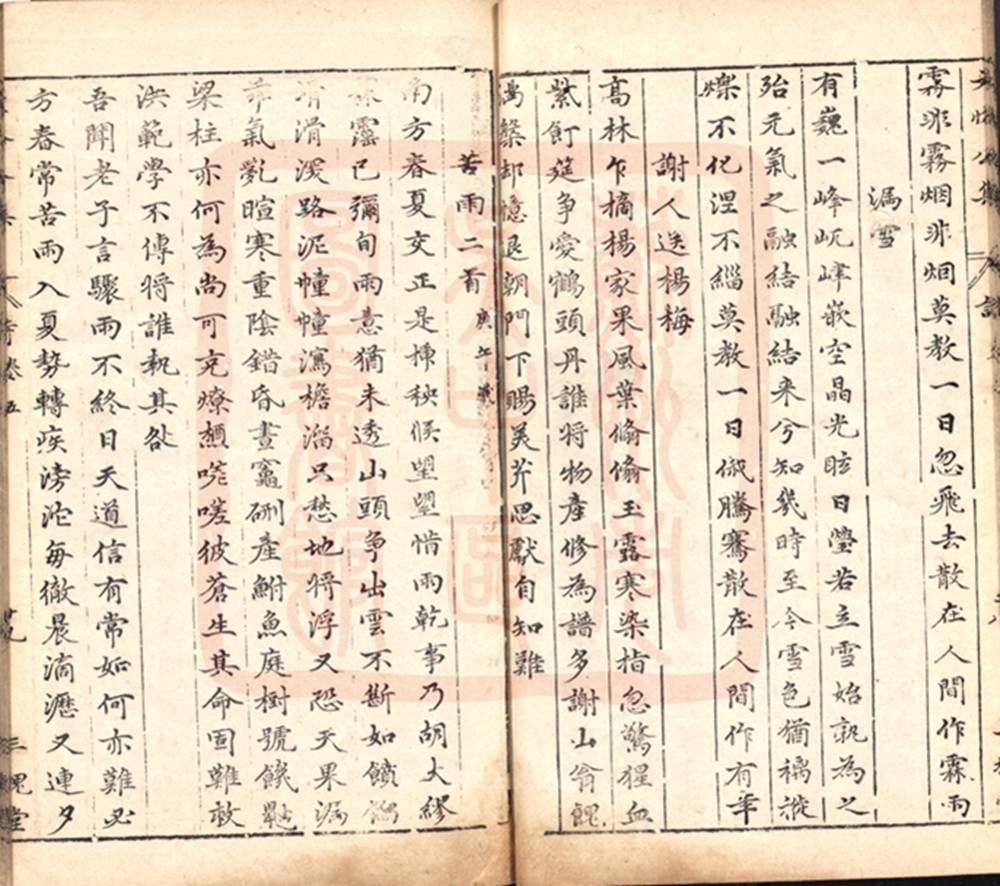 霧非霧烟非烟莫教一日忽飛去散在人間作霖雨
漏雪
有巍一峰屹嵂嵌空晶光眩日瑩若立雪始孰為之
殆元氣之融結融結来兮知幾時至今雪色猶
爍不化涅不緇莫教一日俶騰騫散在人間作有年
謝人送楊梅
高林乍摘楊家果風葉偷偷玉露寒染指忽驚猩血
紫飣筵争愛鶴頭丹誰将物產修為譜多謝山翁餽
築却憶退朝門下賜美芹思獻自知難
苦雨二首 庚午歲
南方春夏交正是揷秧候望望惜雨乾事乃胡大繆
霖霪已彌旬雨意猶未透山頭争出雲不斷如饙餾
滑滑溪路泥幢幢瀉檐溜只愁地将浮又恐天果漏
氣亂暄寒重陰錯昏晝竈硎產鮒魚庭樹號饑鼬
梁柱亦何為尚可充燎槱嗟嗟彼蒼生其命固難救
洪範學不傳将誰執其咎
吾聞老子言驟雨不終日天道信有常如何亦難必
方春常苦雨入夏勢轉疾滂沱每徹晨滴瀝又連夕
詩卷五
三槐堂